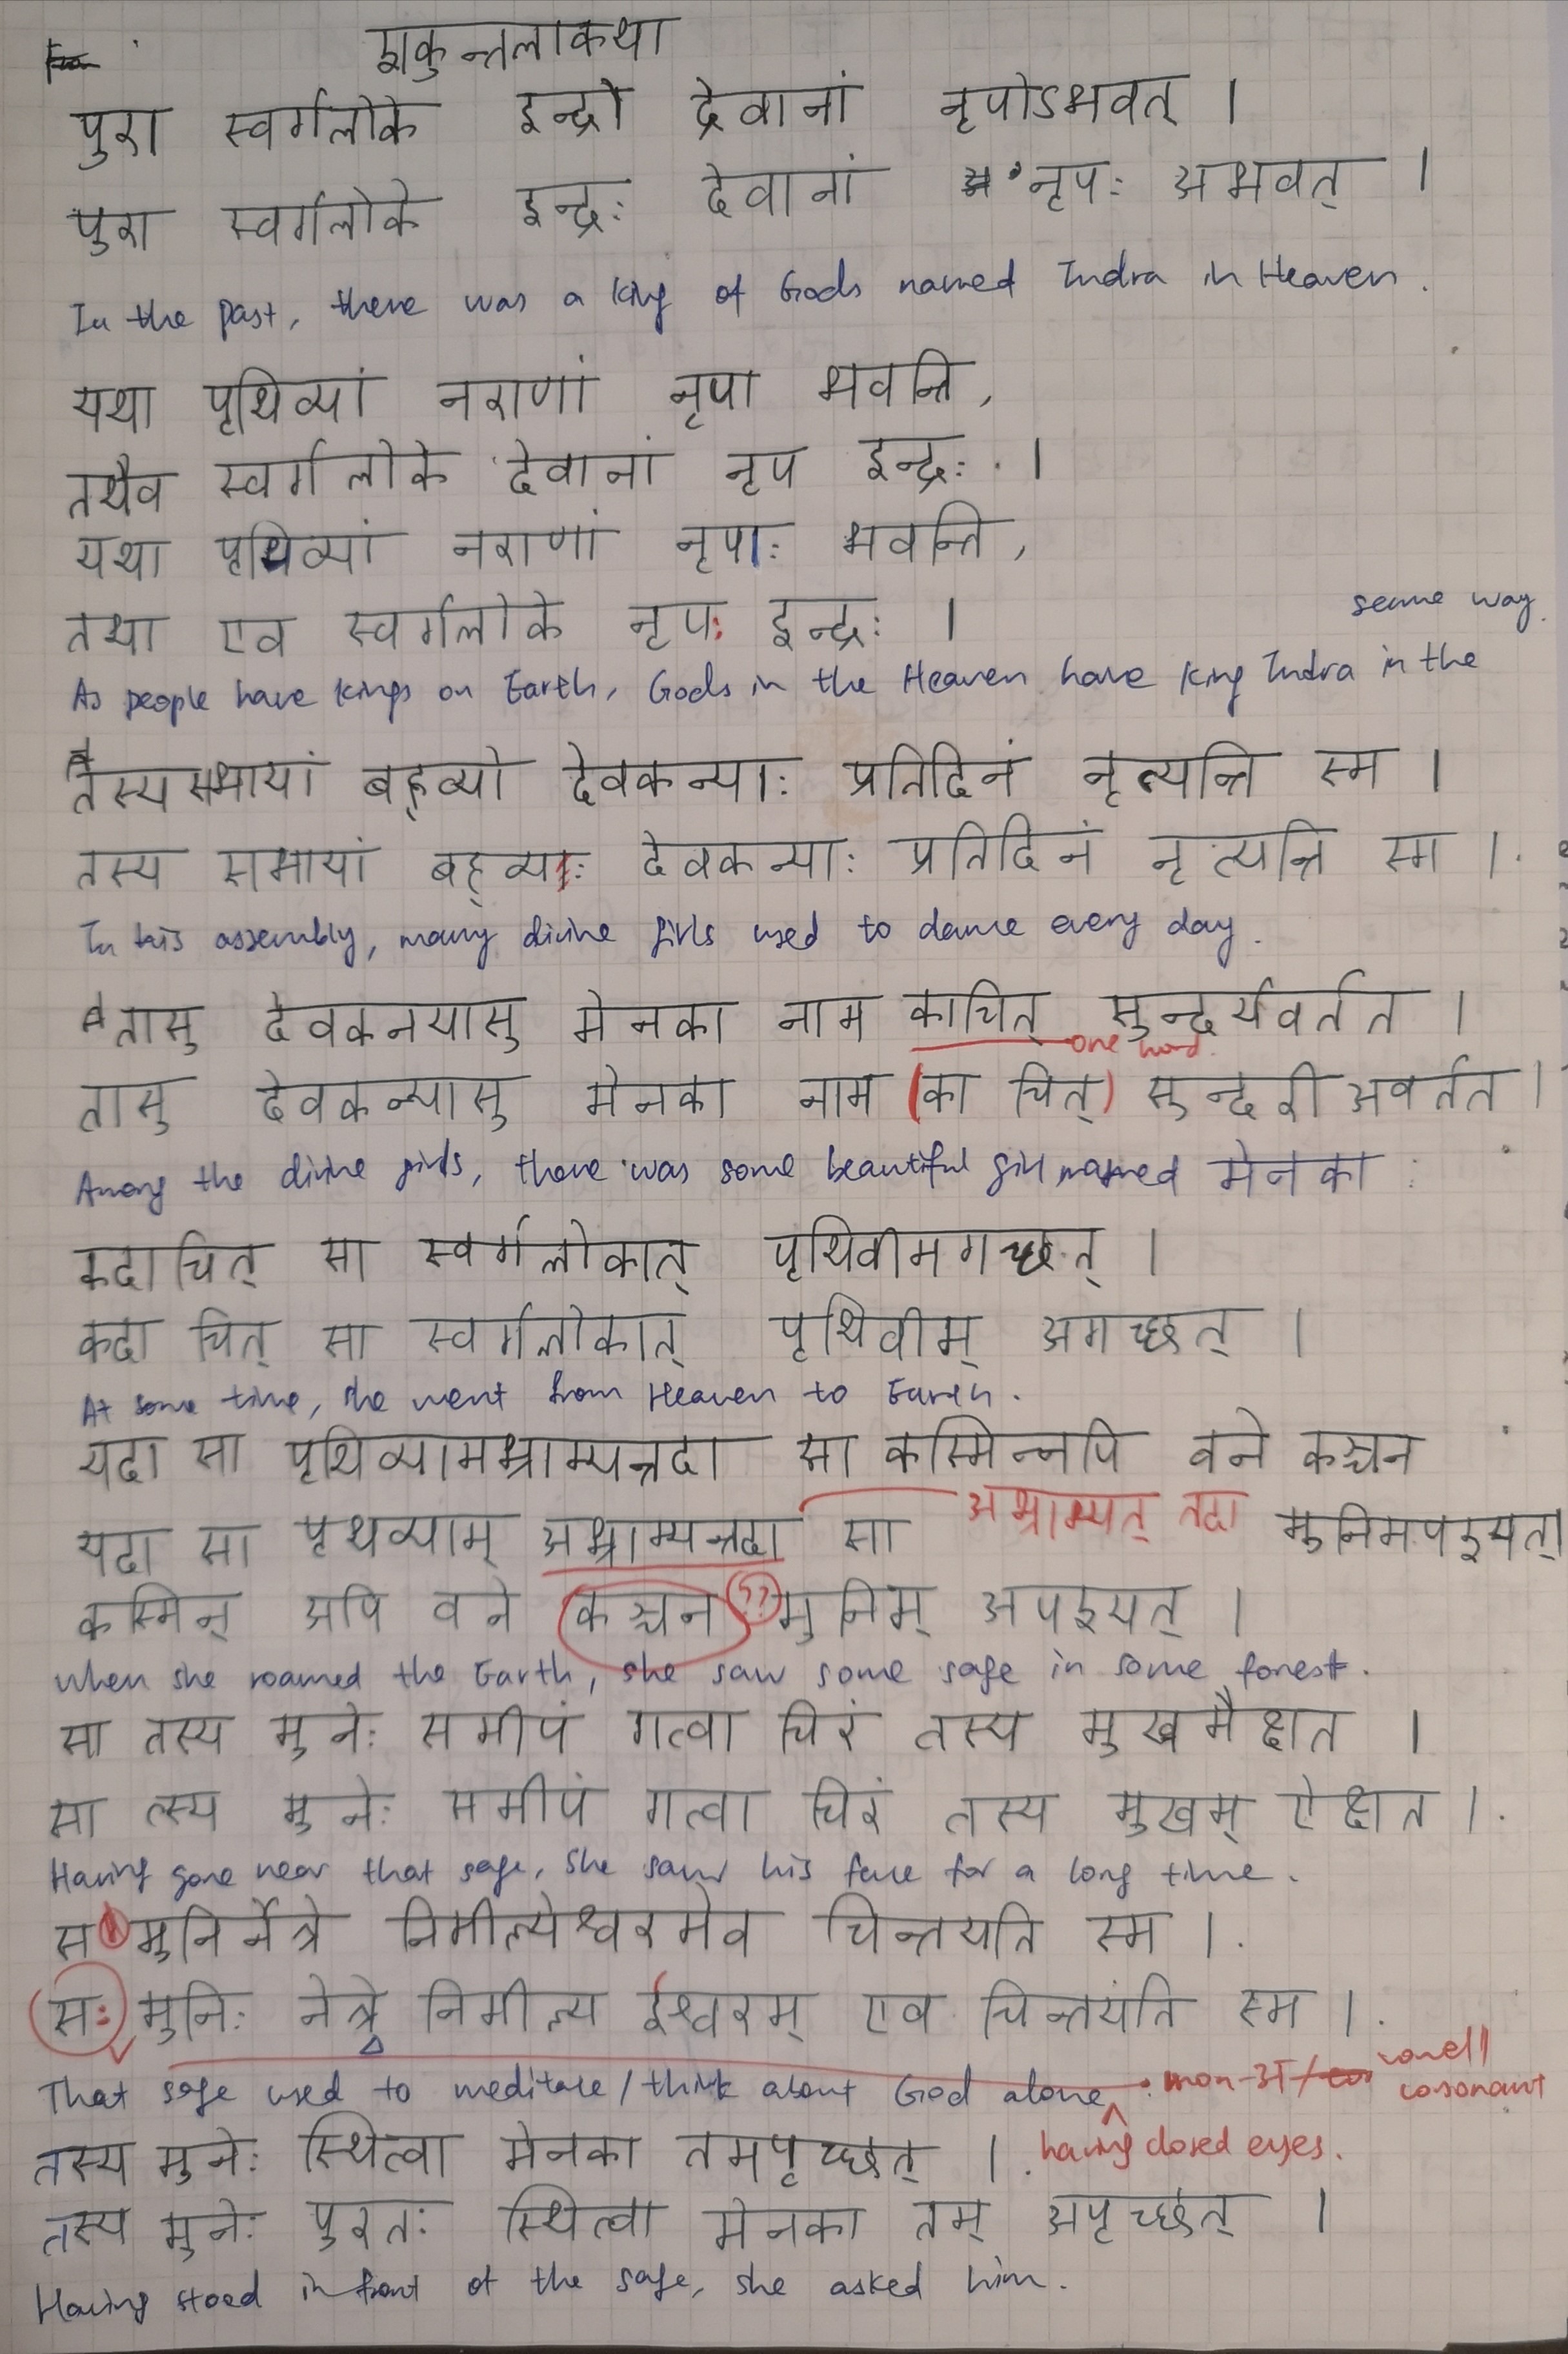 शकुन्तलाकथा
पुरा स्वर्गलोके इन्द्रो देवानां नृपोऽभवत् ।
पुरा स्वर्गलोके इन्द्रः देवानां नृपः अभवत् ।
In the past, there was a king of Gods named Indra in Heaven.
यथा पृथिव्यां नराणां नृपा भवन्ति,
तथैव स्वर्गलोके देवानां नृप इन्द्रः ।
यथा पृथिव्यां नराणां नृपाः भवन्ति,
तथा एव स्वर्गलोके नृपः इन्द्रः ।
same way.
As people have kings on Earth, Gods in the Heaven have king Indra in the
तस्य सभायां बहव्यो देवकन्याः प्रतिदिनं नृत्यन्ति स्म ।
तस्य सभायां बहव्यः देवकन्याः प्रतिदिनं नृत्यन्ति स्म ।
In his assembly, many divine girls used to dance every day.
तासु देवकनयासु मेनका नाम काचित् सुन्दर्यवर्तत ।
one word.
तासु देवकन्यासु मेनका नाम (का चित्) सुन्दरी अवर्तत ।
Among the divine girls, there was some beautiful girl named मेनका
कदाचित् सा स्वर्गलोकात् पृथिवीमगच्छत् ।
कदा चित् सा स्वर्गलोकात् पृथिवीम् अगच्छत् ।
At some time, she went from Heaven to Earth.
यदा सा पृथिव्यामभ्राम्यत्तदा सा कस्मिन्नपि वने कञ्चन
मुनिमपश्यत्।
यदा सा पृथव्याम् अभ्राम्यत्तदा सा
अभ्राम्यत् तदा
कस्मिन् अपि वने कञ्चन ?? मुनिम् अपश्यत् ।
When she roamed the Earth, she saw some sage in some forest.
सा तस्य मुनेः समीपं गत्वा चिरं तस्य मुखमैक्षत ।
सा तस्य मुनेः समीपं गत्वा चिरं तस्य मुखम् ऐक्षत ।
Having gone near that sage, she saw his face for a long time.
स मुनिर्नेत्रे निमील्येश्वरमेव चिन्तयति स्म ।
सः मुनिः नेत्रे निमील्य ईश्वरम् एव चिन्तयति स्म ।
non-अ / vowell
cosonant
That sage used to meditate/think about God alone
having closed eyes.
तस्य मुनेः स्थित्वा मेनका तमपृच्छत् ।
तस्य मुनेः पुरतः स्थित्वा मेनका तम् अपृच्छत् ।
Having stoed in front of the sage, she asked him.